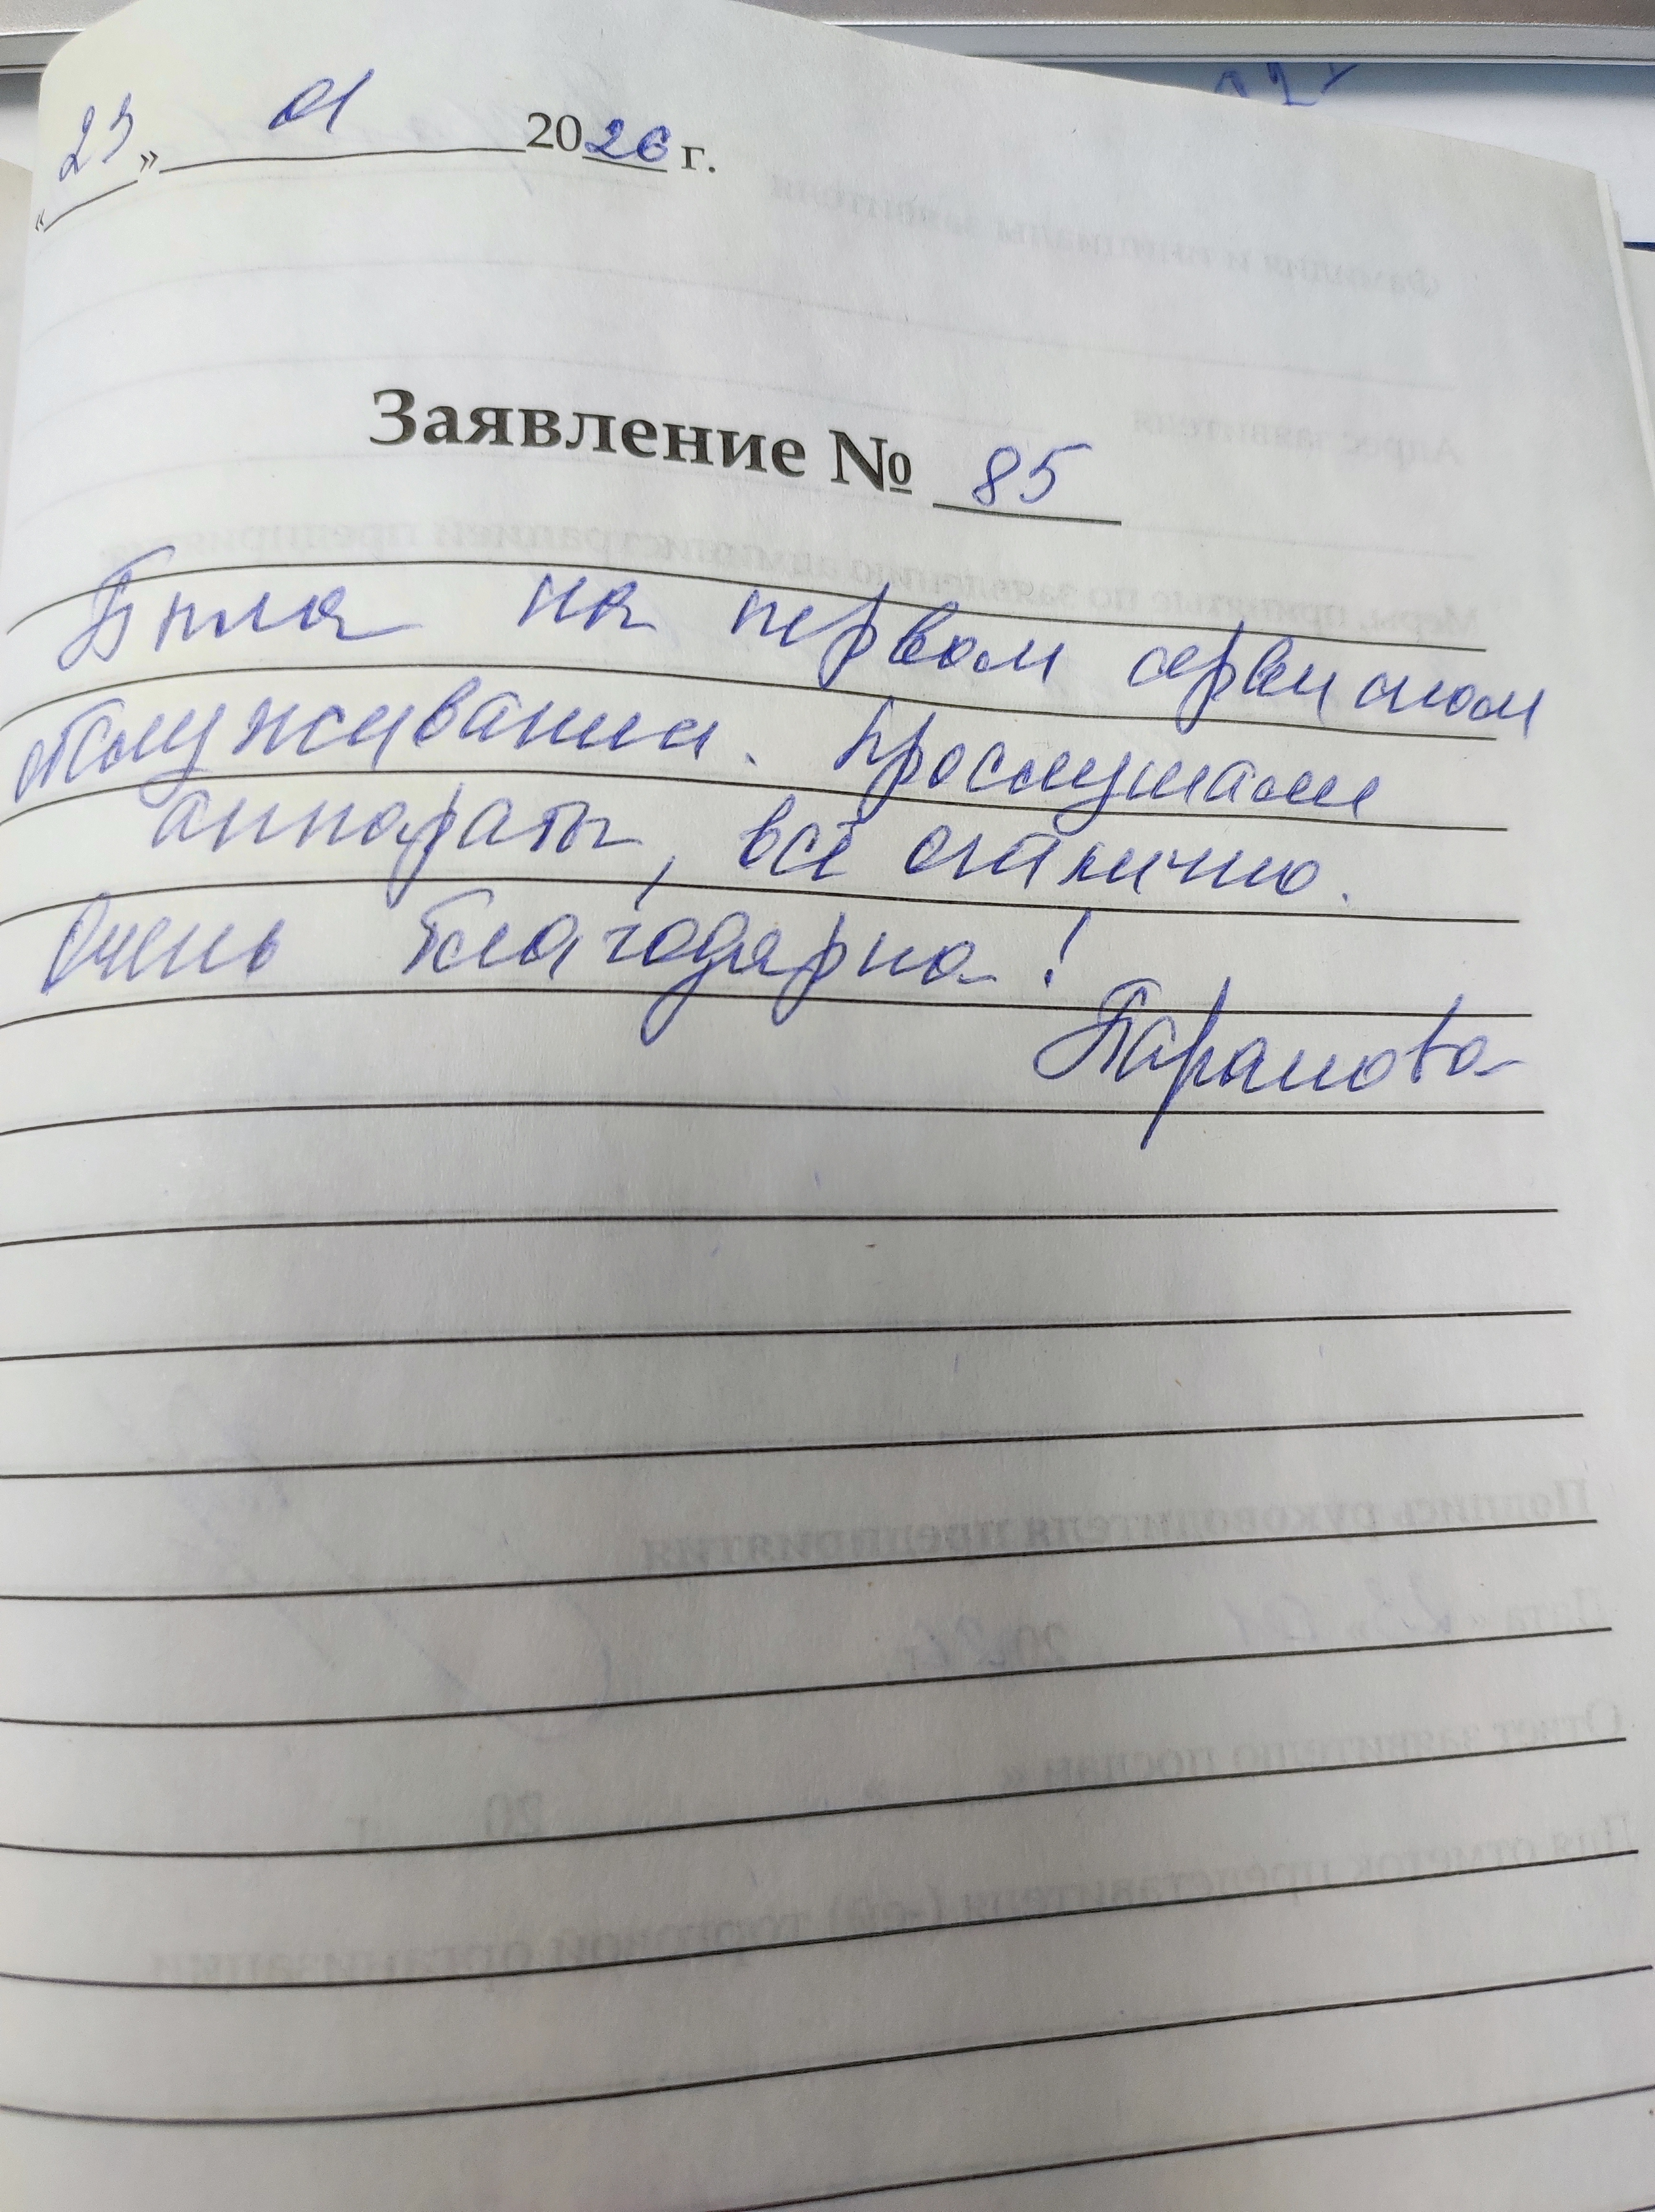 «23» 01 2026 г.
Заявление № 85
Была на первом сервисном
обслуживании. Прослушали
аппараты, всё отлично.
Очень благодарна!